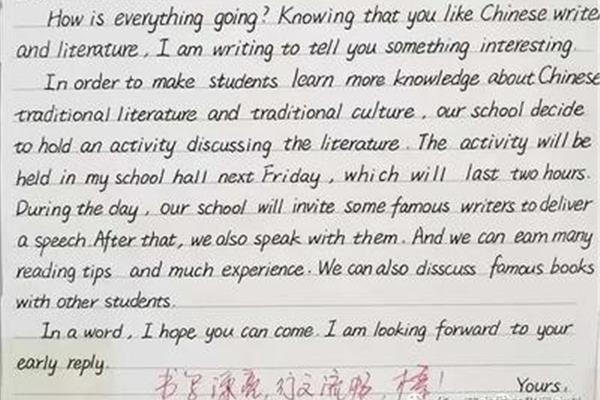 How is everything going? Knowing that you like Chinese write
and literature, I am writing to tell you something interesting.
In order to make students learn more knowledge about Chinese
traditional literature and traditional culture, our school decide
to hold an activity discussing the literature. The activity will be
held in my school hall next Friday, which will last two hours.
During the day, our school will invite some famous writers to deliver
a speech. After that, we also speak with them. And we can earn many
reading tips and much experience. We can also disscuss famous books
with other students.
In a word, I hope you can come. I am looking forward to your
early reply.
书写漂亮,行文流畅,棒!
Yours,